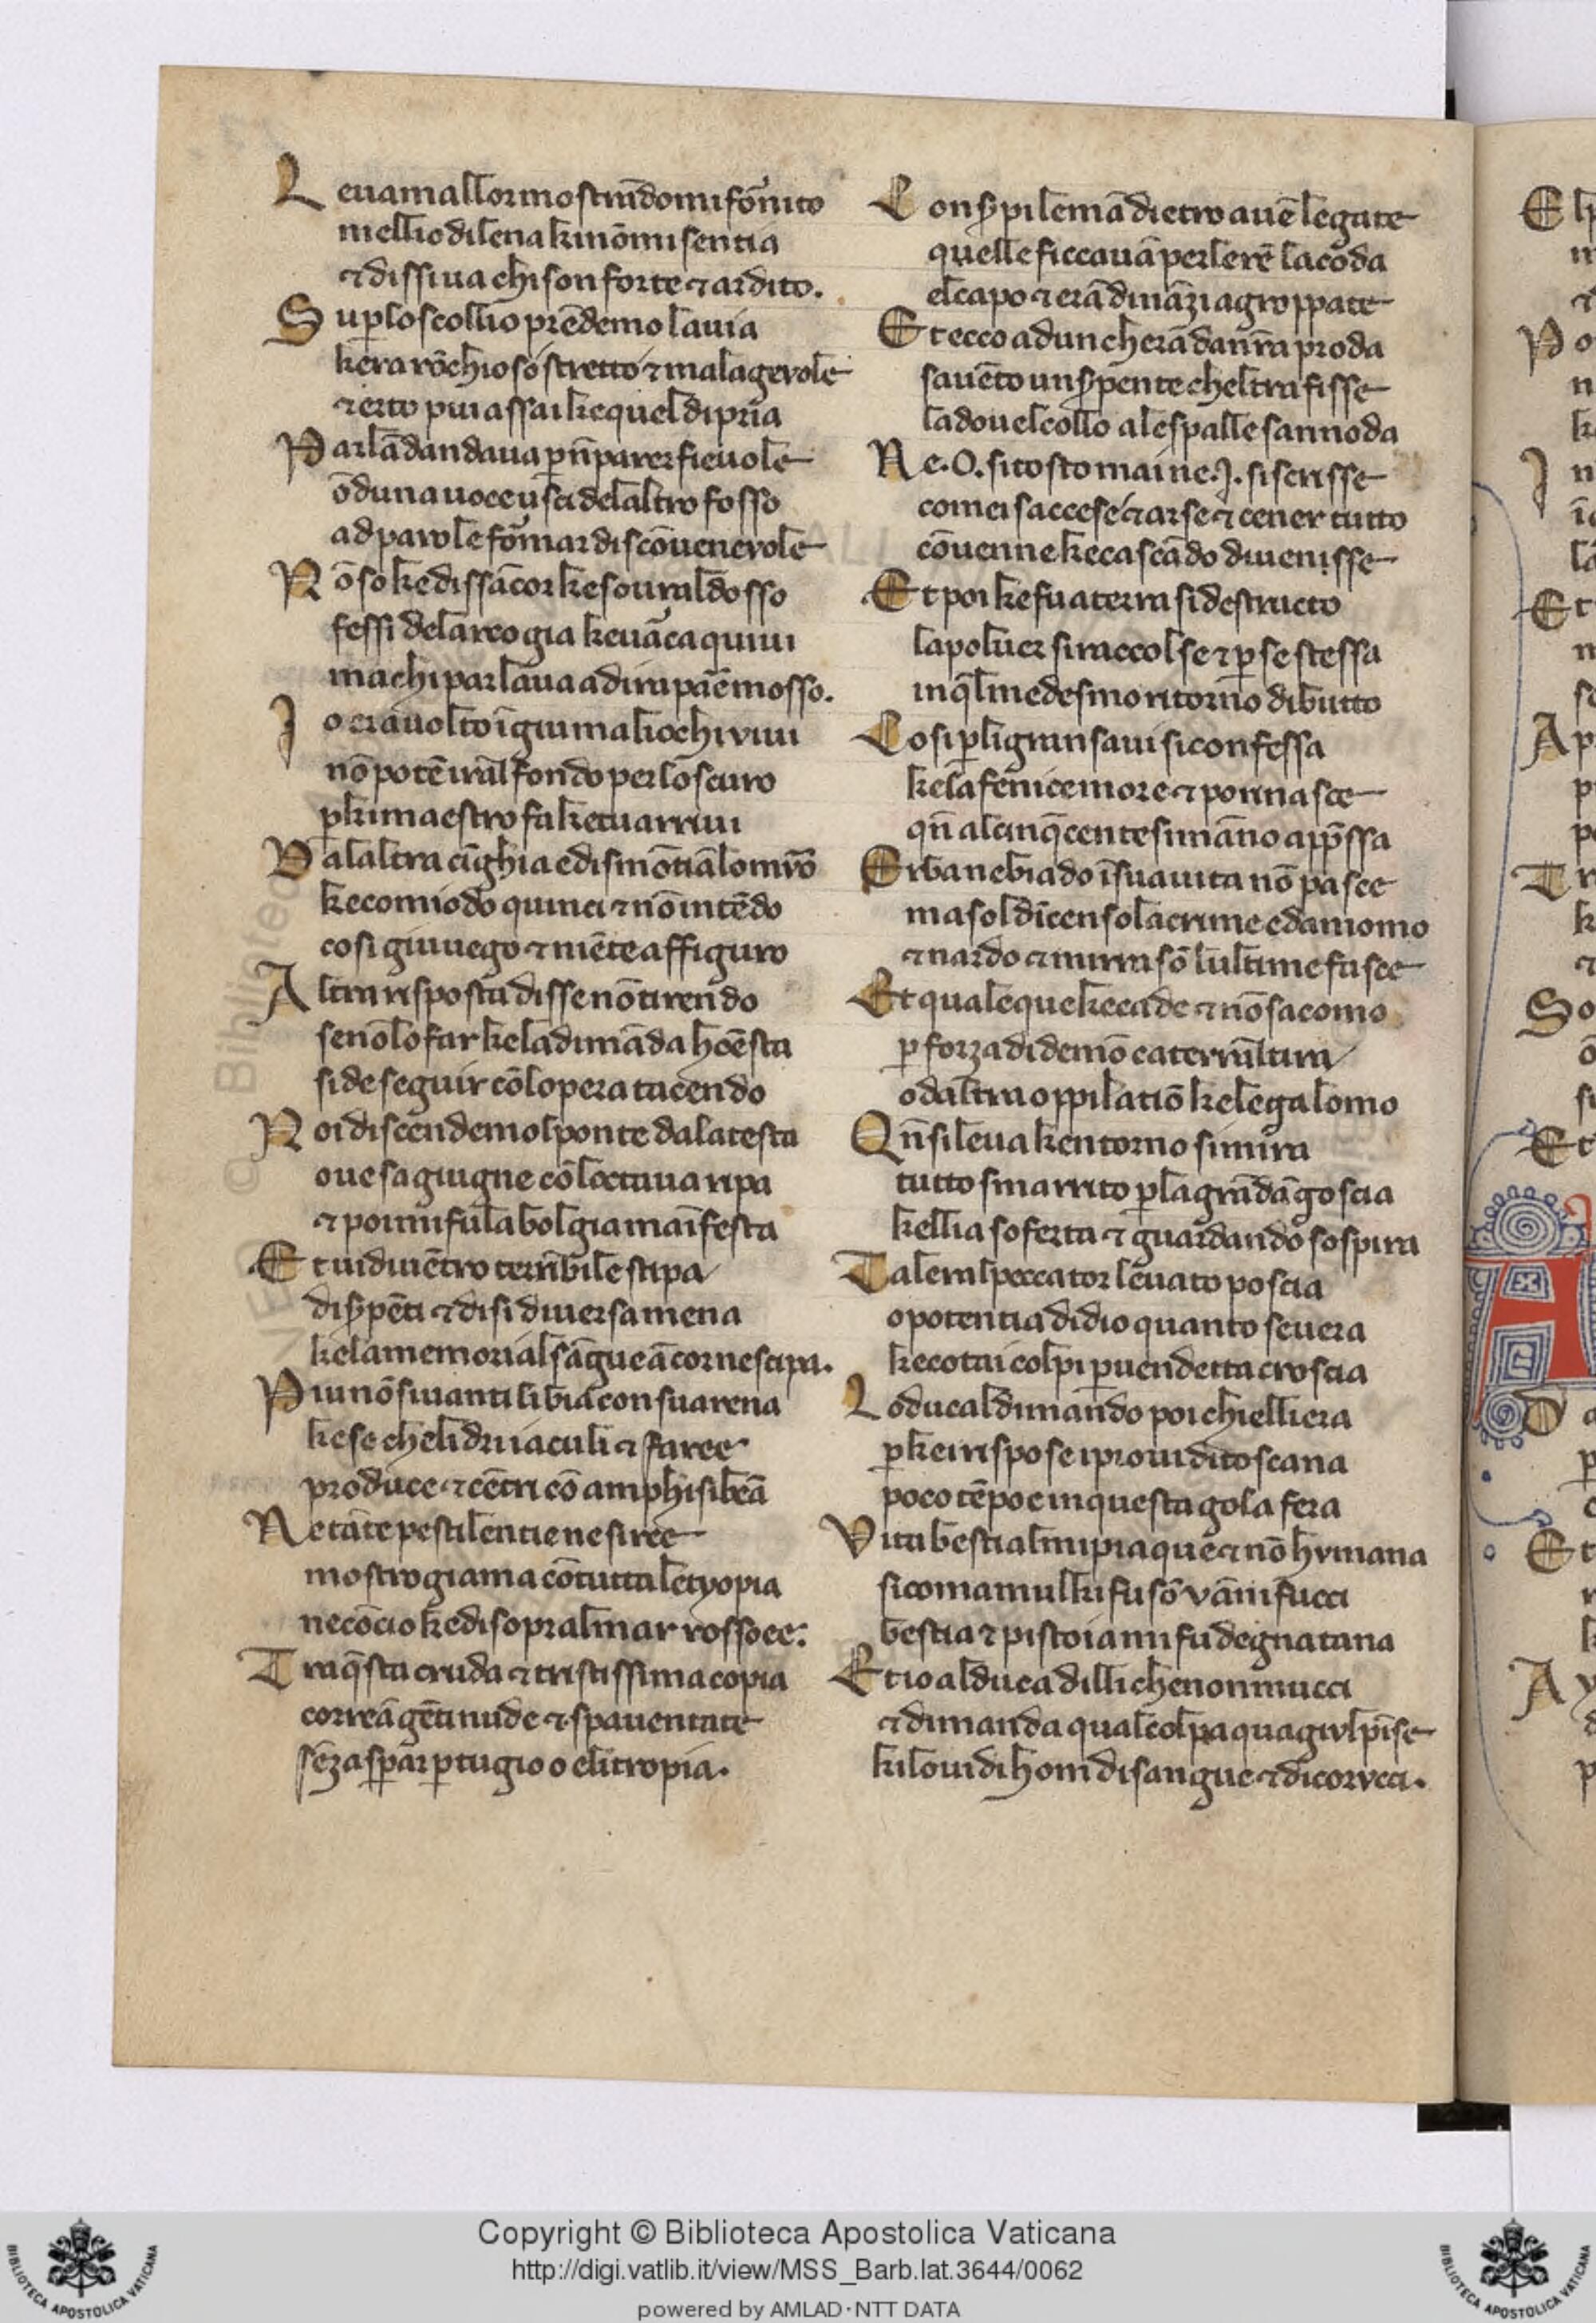 Leuamallor mostrãdomi fornito
mellio di lena ki nõ mi sentia
⁊ dissi ua chi son forte ⁊ ardito.
Su per lo scollio prẽdemo la uia
kera rõchioso stretto ⁊ malagevole
⁊ erto piu assai ke quel di pria
Parlãdo andaua p nõ parer fieuole
õduna uoce usci delaltro fosso
ad parole formar discõuenevole
Nõ so ke dissãcor ke soural dosso
fessi delarco gia ke uarca quiui
ma chi parlaua ad ira parẽ mosso.
Io era uolto ĩ giu ma liochi viui
nõ potẽ iral fondo per loscuro
p kio maestro fa ke tu arriui
Dalaltra cĩghia e dismõtiã lo muro
ke comio do quinci ⁊ nõ intẽdo
cosi giu uego ⁊ niẽte affiguro
Altra risposta disse nõ ti rendo
se nõ lo far ke la dimãda honesta
si de seguir cõ lopera tacendo
Noi discendemol ponte da la testa
oue sagiugne cõ loctaua ripa
⁊ poi mi fu la bolgia manifesta
Et uidiui ẽtro terribile stipa
di serpẽti ⁊ di si diuersa mena
ke la memorial sãgue ãcor ne scipa.
Piu nõ si uanti libia con sua rena
ke se chelidri iaculi ⁊ faree
produce ⁊ cẽcri cõ amphisibenã
Ne tãte pestilentie ne si ree
mostro giama cõ tutta letyopia
ne cõ cio ke di sopral mar rosso ee.
Tra qsta cruda ⁊ tristissima copia
correã gẽti nude ⁊ spauentate
sẽza sperar ptugio o elitropia.
Con serpi le mã dietro auẽ legate
quelle ficcauã per le rẽ la coda
el capo ⁊ erã dinãzi agroppate
Et ecco ad un cherã da nra proda
sauẽto un serpente chel trafisse
la douel collo ale spalle sannoda
Ne .O. si tosto mai ne .I. si scrisse
comei saccese ⁊ arse ⁊ cener tutto
cõuenne ke cascãdo diuenisse
Et poi ke fu a terra si destructo
la poluer si raccolse ⁊ p se stessa
in ql medesmo ritorno di butto
Cosi p li gran saui si confessa
ke la fenice more ⁊ poi rinasce
qñ al cinqcentesimo ãno appssa
Erba ne biado ĩ sua uita nõ pasce
ma sol dĩcenso lacrime e damomo
⁊ nardo ⁊ mirra sõ lultime fasce
Et quale que ke cade ⁊ nõ sa como
p forza di demõ ca terra il tira
o daltra oppilatiõ ke lega lomo
Qñ si leua kentorno si mira
tutto smarrito p la grãdãgoscia
kellia soferta ⁊ guardando sospira
Tal eral peccator leuato poscia
o potentia di dio quanto seuera
ke cotai colpi p uendetta croscia
Lo ducal dimandò poi chi elli era
p kei rispose i pioui di toscana
poco tẽpo e in questa gola fera
Vita bestial mi piaque ⁊ nõ hvmana
si coma mul ki fu sõ vãni fucci
bestia ⁊ pistoia mi fu degna tana
Et io al duca dilli che non mucci
⁊ dimanda qual colpa qua giu lpĩse
kilo uidi hom di sangue ⁊ di corvcci.
Copyright © Biblioteca Apostolica Vaticana
http://digi.vatlib.it/view/MSS_Barb.lat.3644/0062
powered by AMLAD·NTT DATA